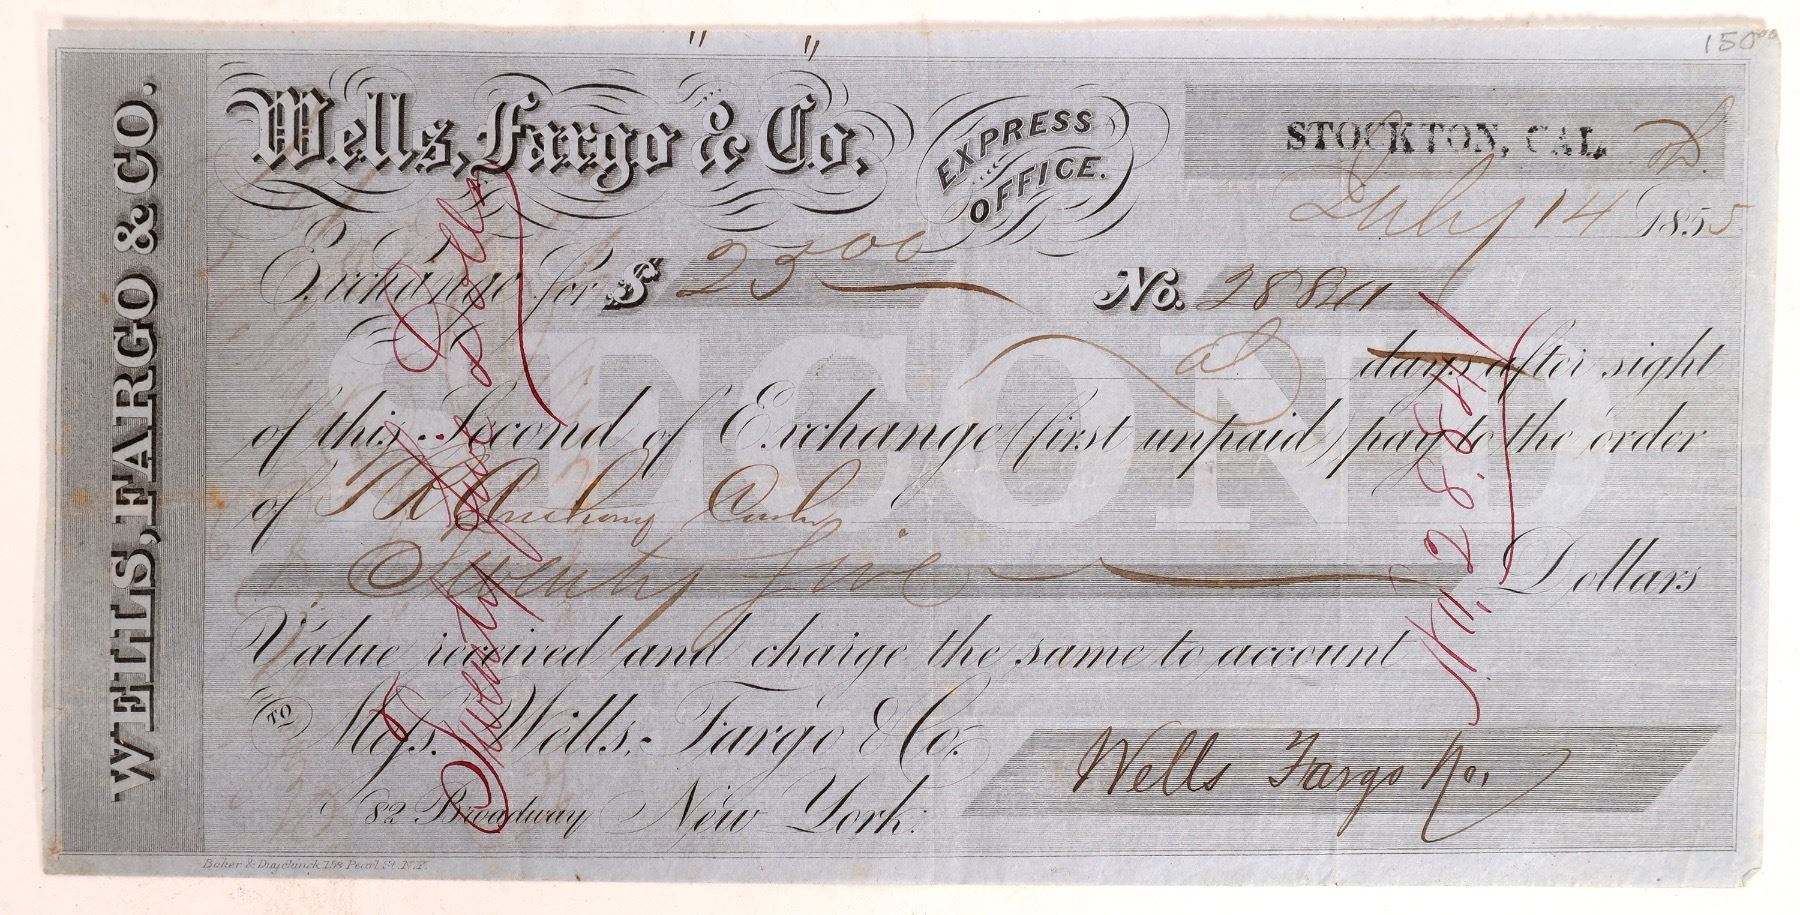 150⁰⁰
WELLS, FARGO & CO.
Wells, Fargo & Co.
EXPRESS OFFICE.
STOCKTON, CAL.
July 14 1855
Exchange for $ 25 00
No. 28841
at days after sight
of this Second of Exchange (first unpaid) pay to the order
of Anthony
SECOND
Twenty five Dollars
Value received and charge the same to account
TO Mess. Wells, Fargo & Co.
Wells Fargo & Co.
82 Broadway New York.
Twenty five Dolls
No. 28.841
Baker & Duyckinck 158 Pearl St. N.Y.